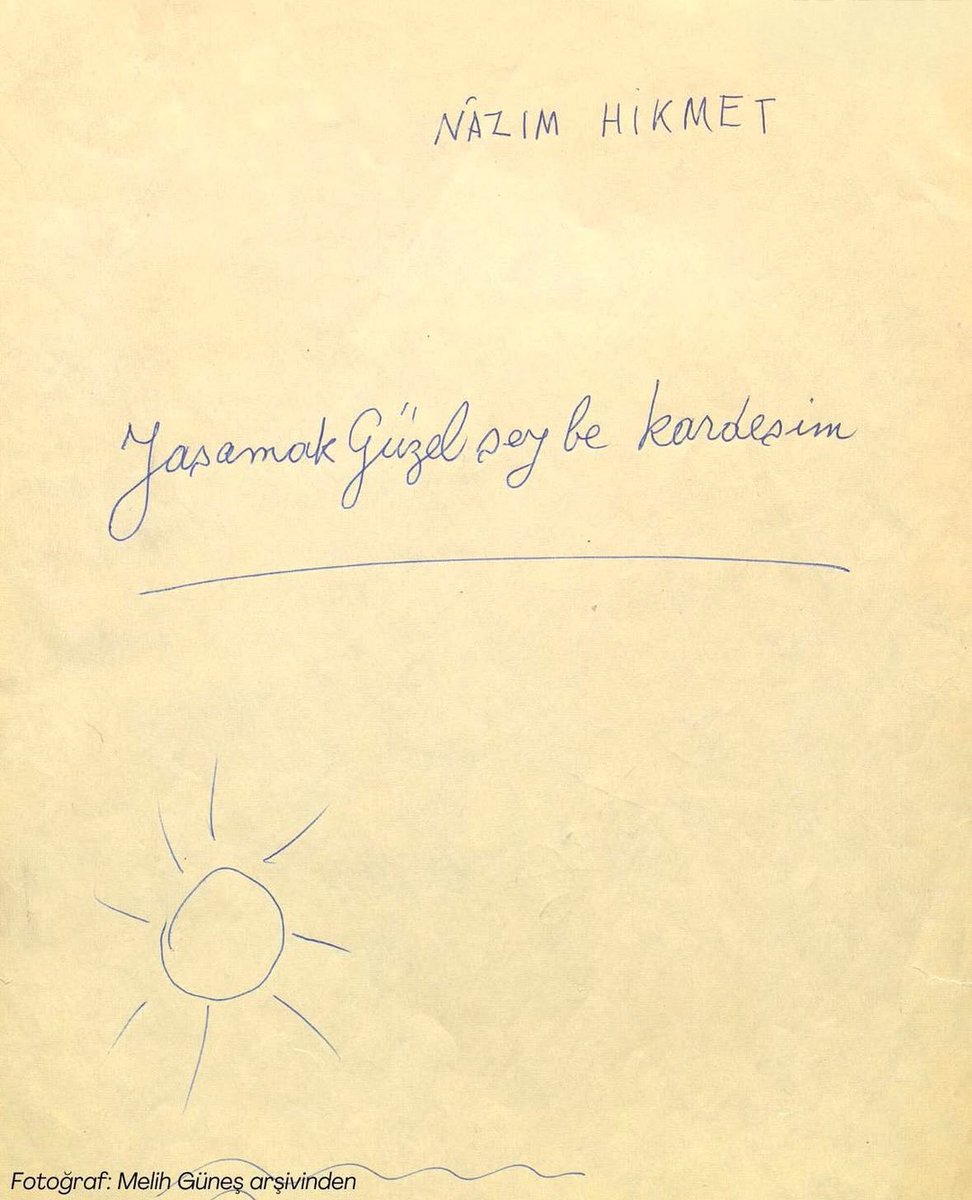 NÂZIM HİKMET
Yaşamak Güzel şey be kardeşim
Fotoğraf: Melih Güneş arşivinden